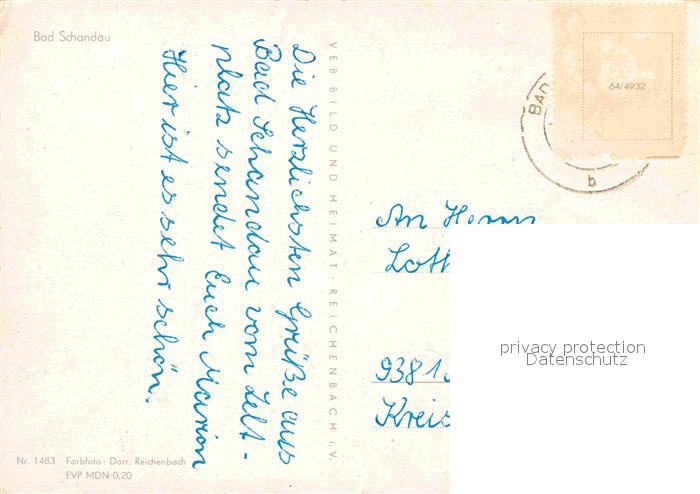 Bad Schandau
Die Herzlichsten Grüße aus
Bad Schandau vom Zelt-
platz sendet Euch Marion
Hier ist es sehr schön.
VEB BILD UND HEIMAT · REICHENBACH i. V.
64/4932
BAD
b
An Herrn
Loth
9381
Kreis
privacy protection
Datenschutz
Nr. 1483 Farbfoto: Darr, Reichenbach
EVP MDN 0,20